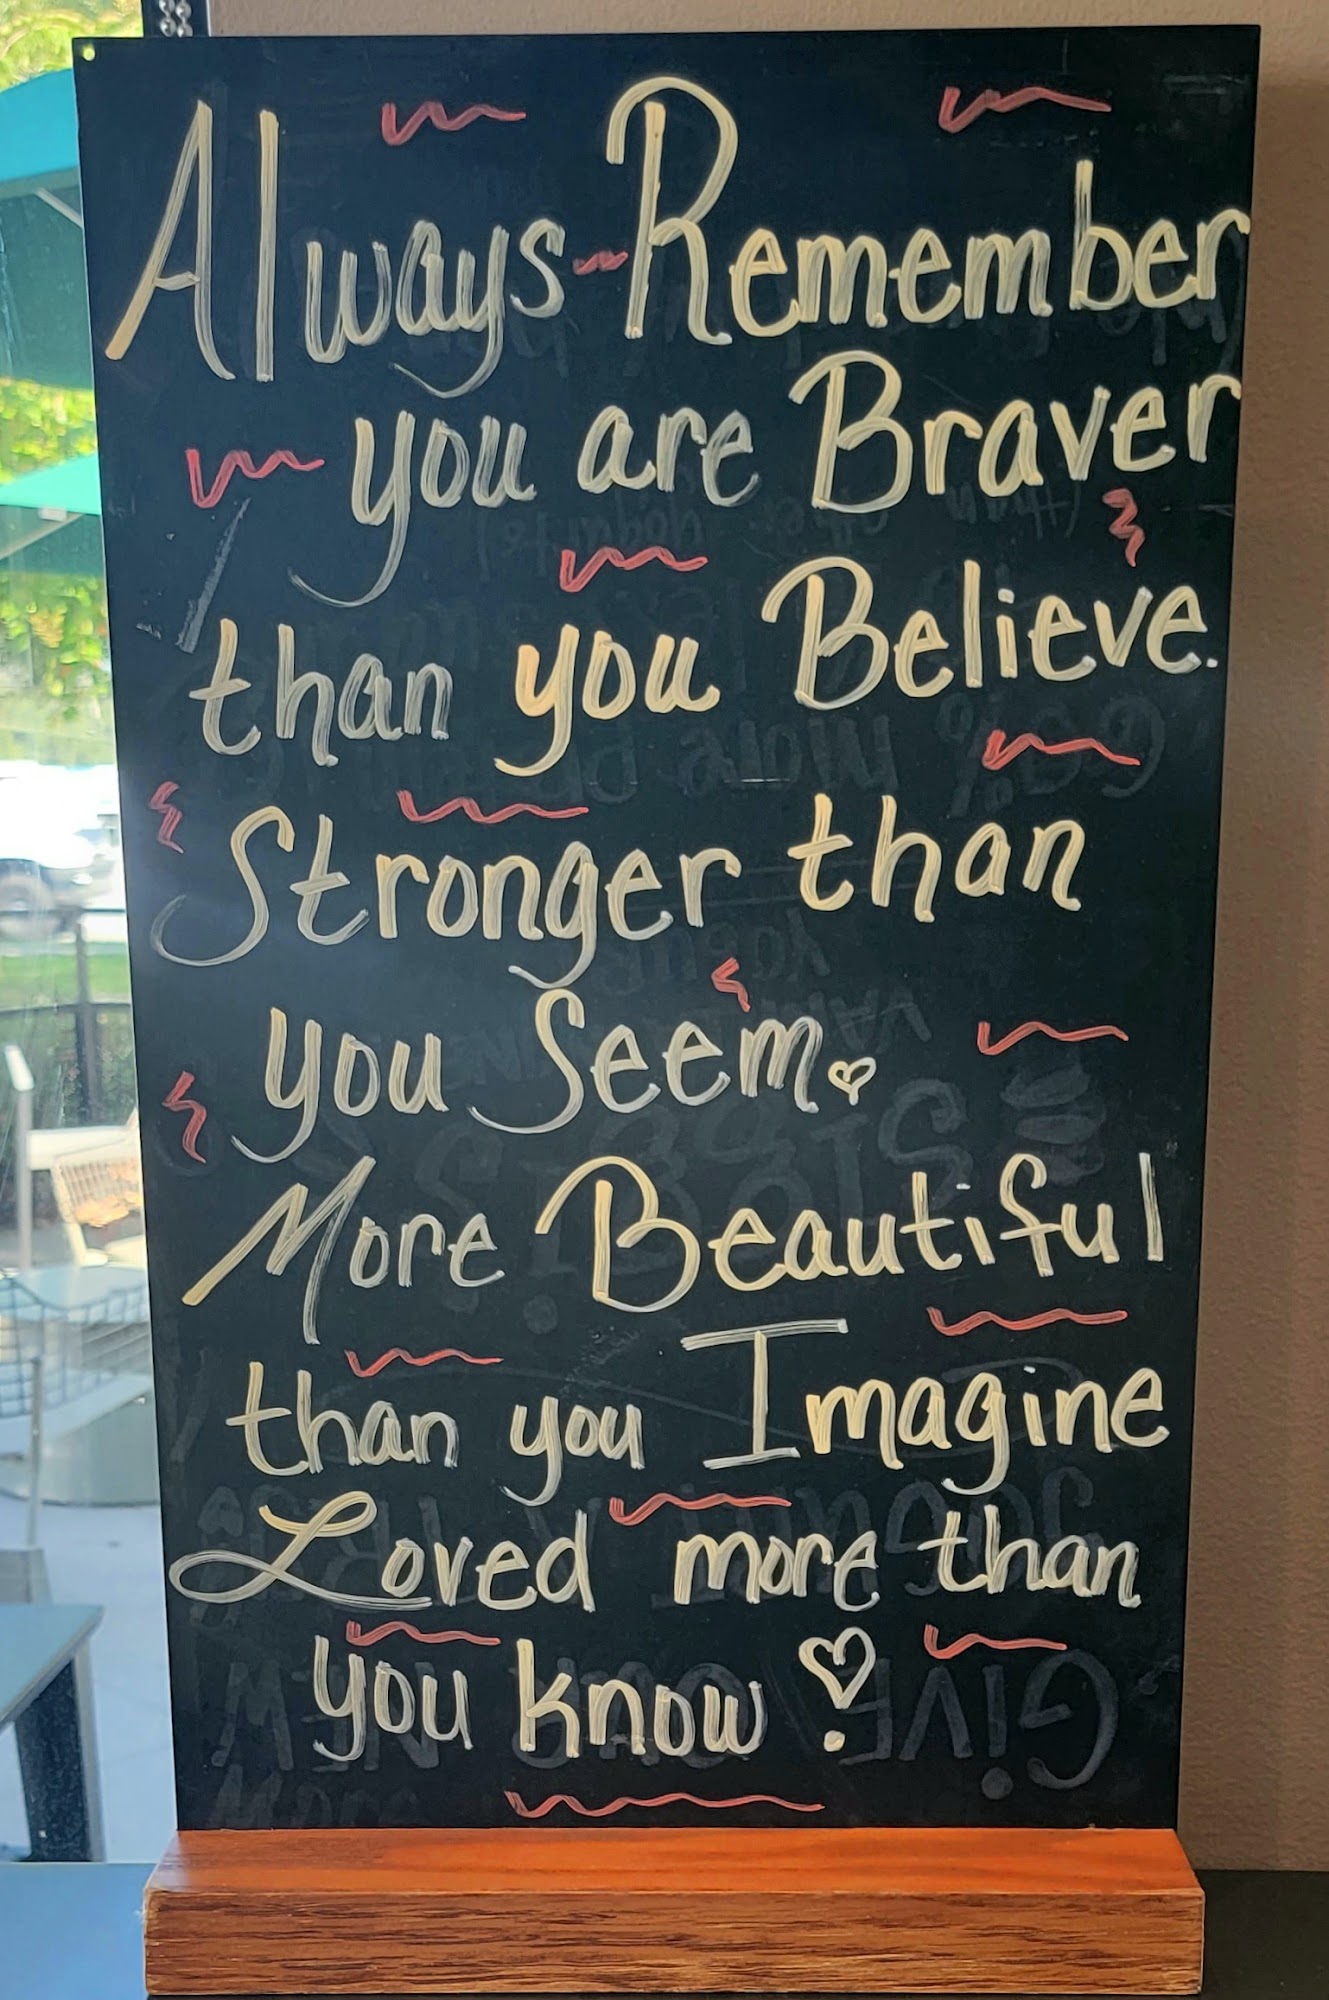 Always Remember
you are Braver
than you Believe.
Stronger than
you Seem.
More Beautiful
than you Imagine
Loved more than
you know